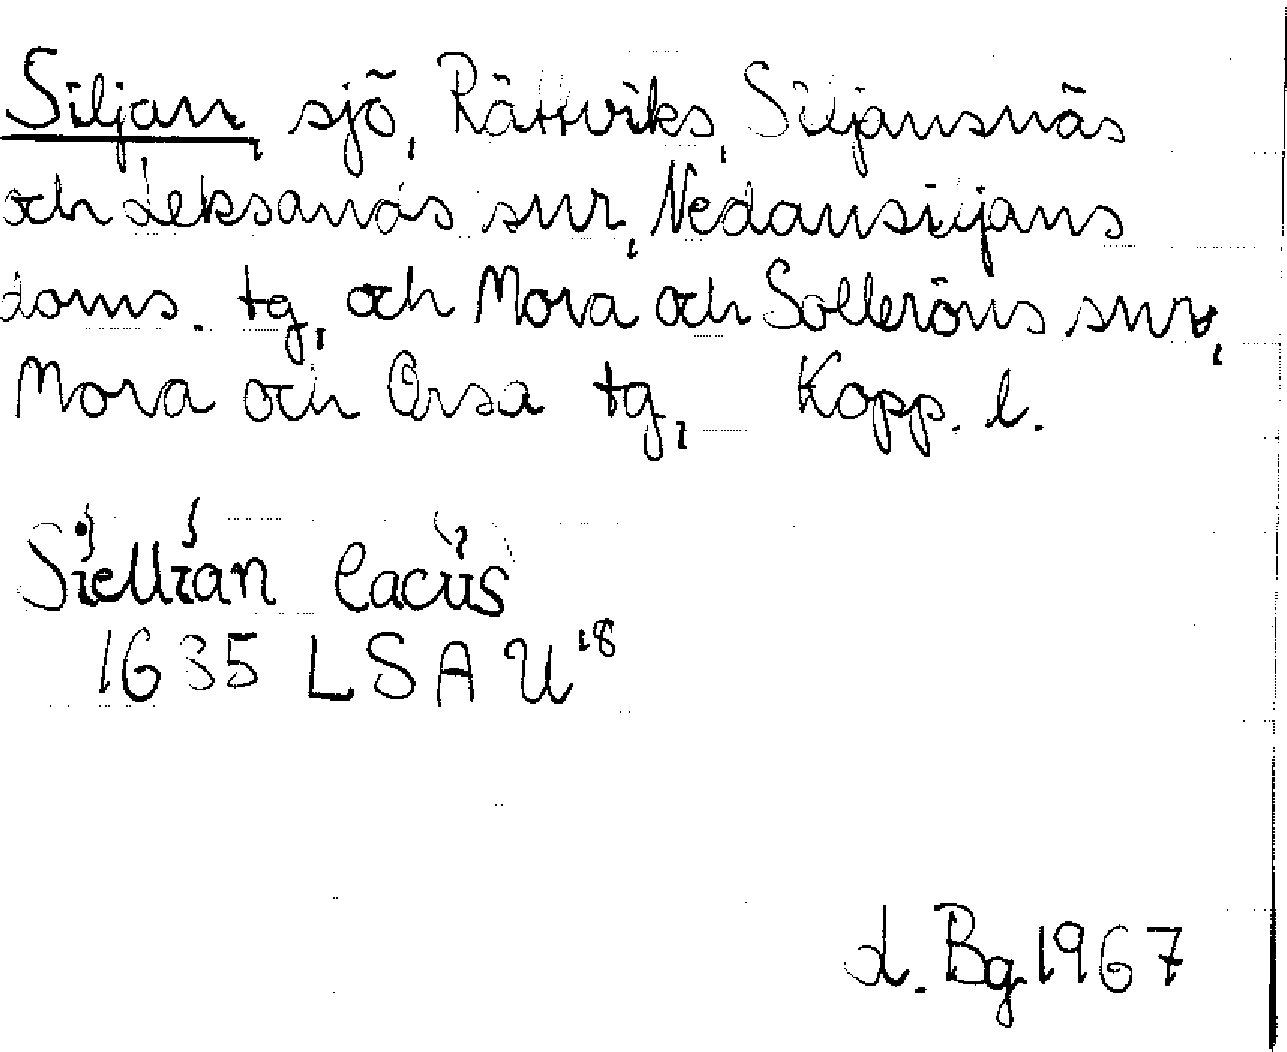 Siljan, sjö, Rättviks, Siljansnäs
och Leksands snr, Nedansiljans
doms. tg, och Mora och Solleröns snr,
Mora och Orsa tg, Kopp. l.
Siellian lacus
1635 LSA U 18
L. Bg 1967